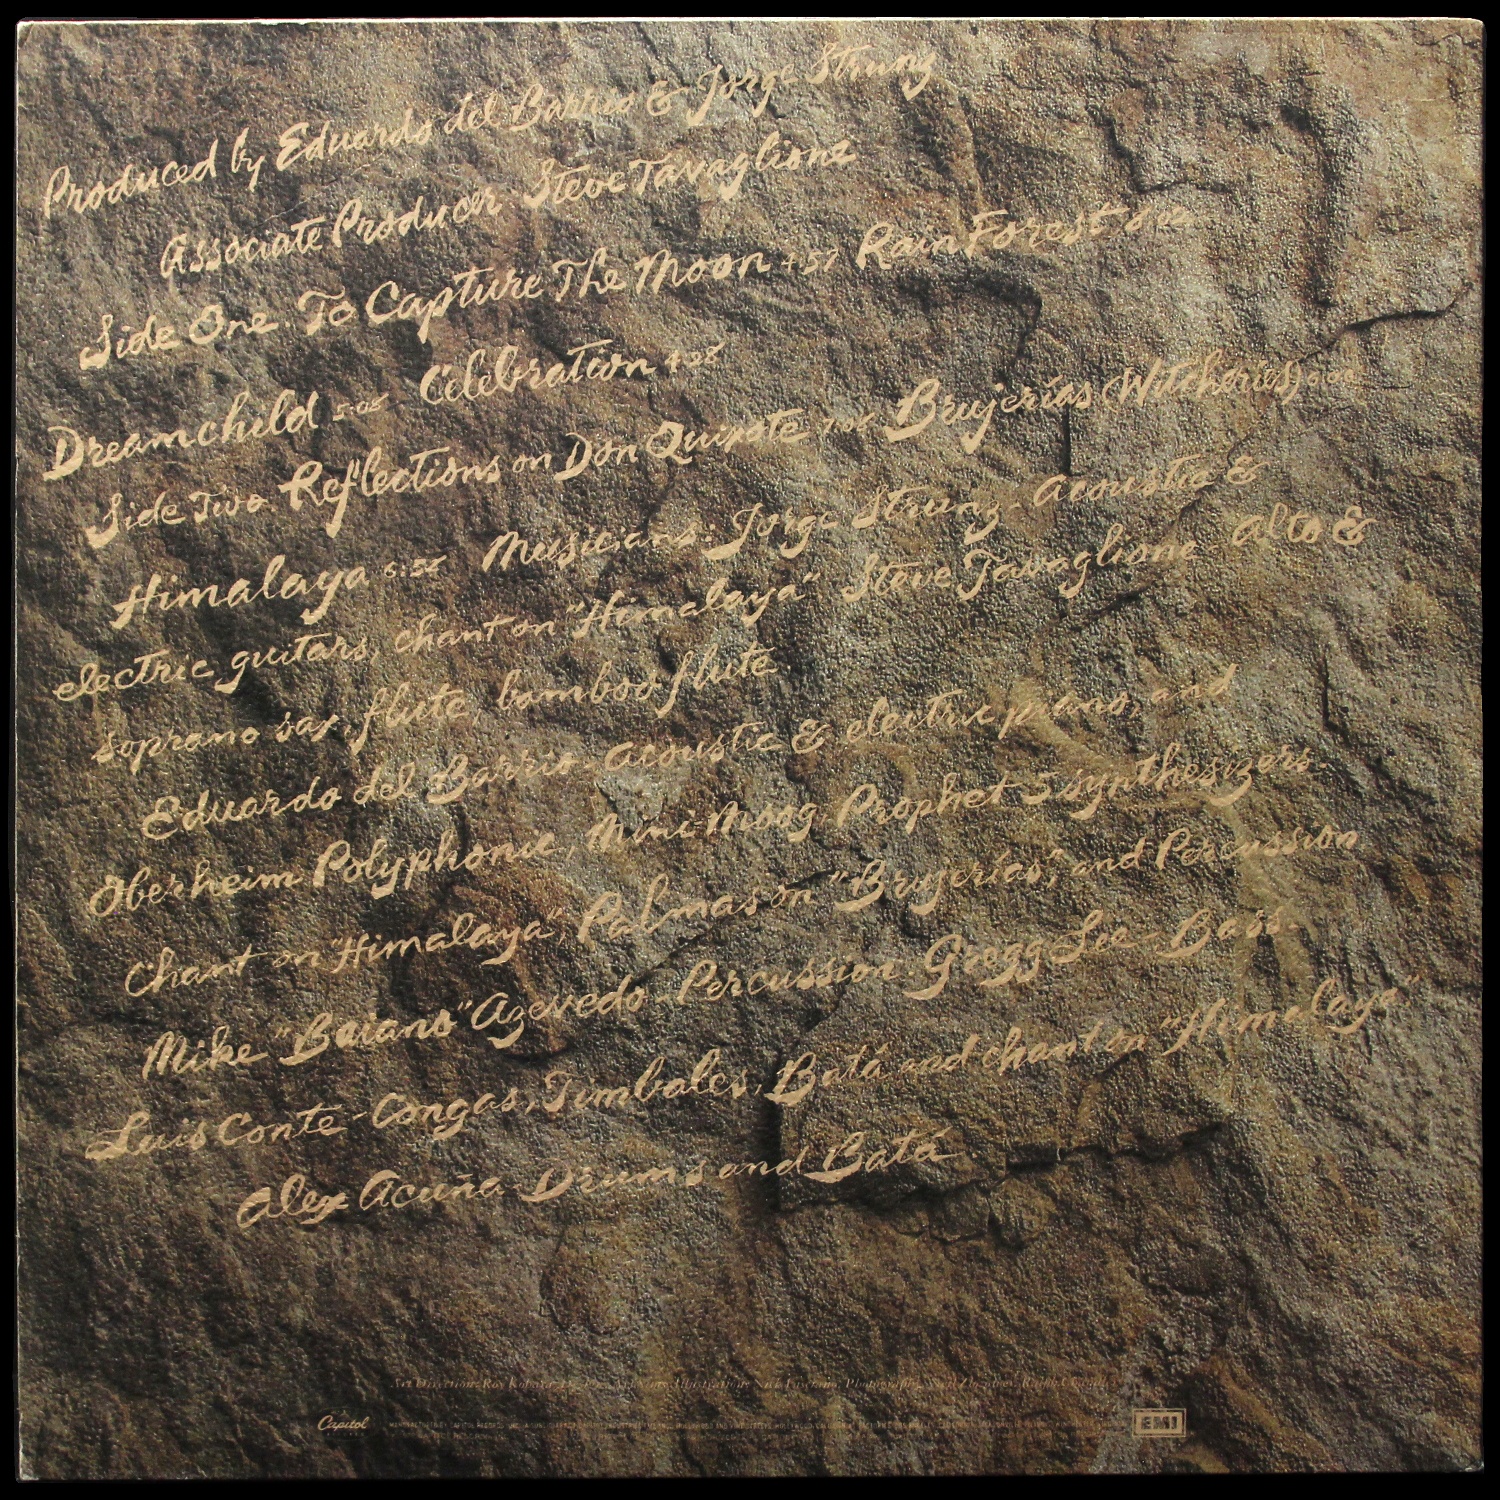 Produced by Eduardo del Barrio & Jorge Strunz
Associate Producer Steve Tavaglione
Side One. To Capture The Moon 4:57 Rain Forest
Dreamchild 5:06 Celebration 4:28
Side Two. Reflections on Don Quixote 7:06 Brujerías (Witcheries)
Himalaya 6:56 Musicians: Jorge Strunz - acoustic &
electric guitars, chant on "Himalaya" Steve Tavaglione - alto &
soprano sax, flute, bamboo flute
Eduardo del Barrio - acoustic & electric piano, and
Oberheim Polyphonic, Mini Moog Prophet-5 synthesizers.
Chant on "Himalaya", Palmas on "Brujerías", and Percussion
Mike "Baiano" Azevedo - Percussion. Gregg Lee - Bass.
Luis Conte - Congas, Timbales, Batá and chant on "Himalaya"
Alex Acuña Drums and Batá
Capitol
EMI